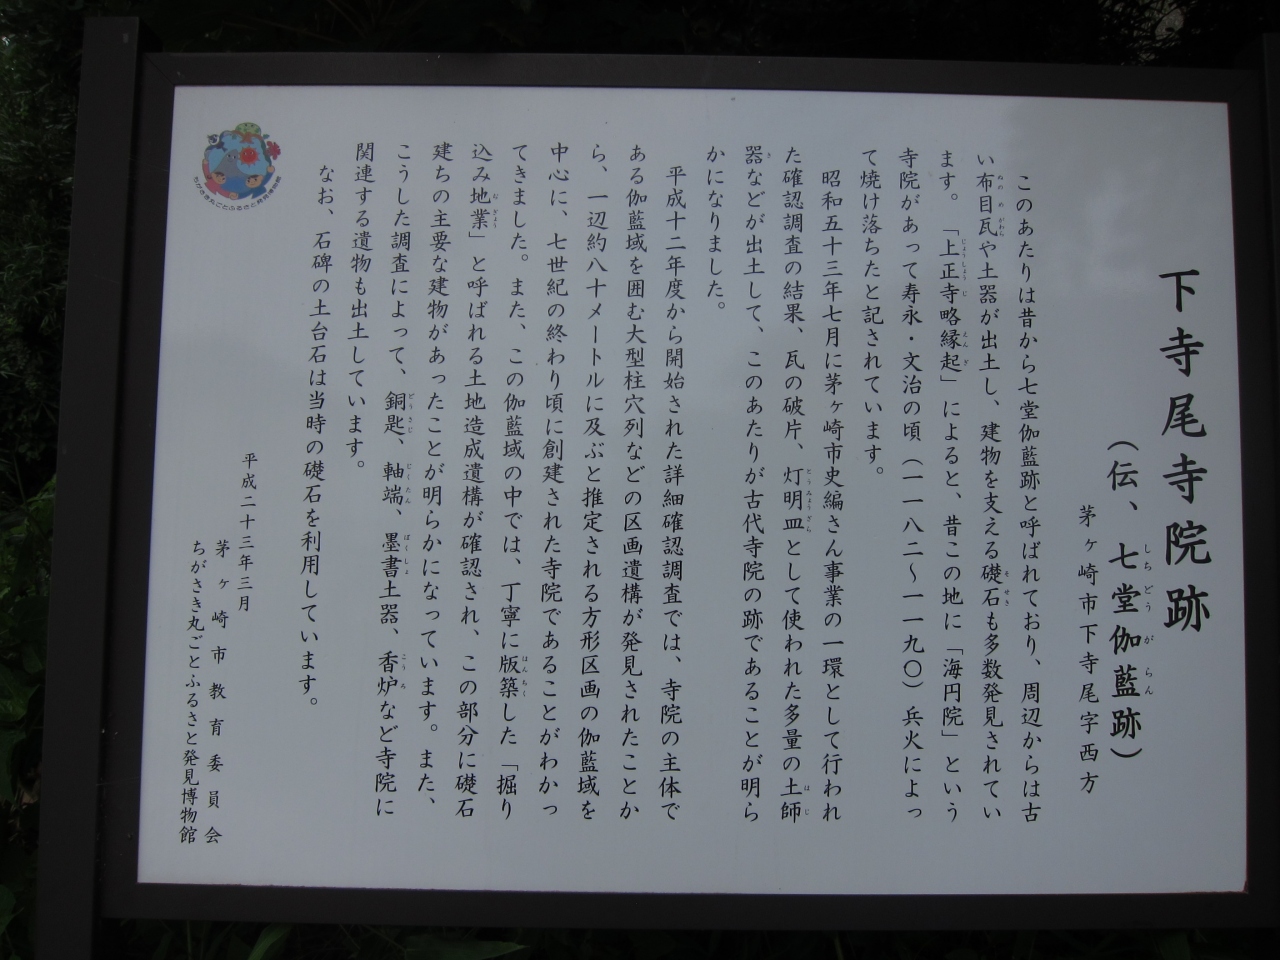 下寺尾寺院跡
（伝、七堂伽藍跡）
茅ヶ崎市下寺尾字西方
このあたりは昔から七堂伽藍跡と呼ばれており、周辺からは古
い布目瓦や土器が出土し、建物を支える礎石も多数発見されてい
ます。「上正寺略縁起」によると、昔この地に「海円院」という
寺院があって寿永・文治の頃（一一八二〜一一九〇）兵火によっ
て焼け落ちたと記されています。
昭和五十三年七月に茅ヶ崎市史編さん事業の一環として行われ
た確認調査の結果、瓦の破片、灯明皿として使われた多量の土師
器などが出土して、このあたりが古代寺院の跡であることが明ら
かになりました。
平成十二年度から開始された詳細確認調査では、寺院の主体で
ある伽藍域を囲む大型柱穴列などの区画遺構が発見されたことか
ら、一辺約八十メートルに及ぶと推定される方形区画の伽藍域を
中心に、七世紀の終わり頃に創建された寺院であることがわかっ
てきました。また、この伽藍域の中では、丁寧に版築した「掘り
込み地業」と呼ばれる土地造成遺構が確認され、この部分に礎石
建ちの主要な建物があったことが明らかになっています。また、
こうした調査によって、銅匙、軸端、墨書土器、香炉など寺院に
関連する遺物も出土しています。
なお、石碑の土台石は当時の礎石を利用しています。
平成二十三年三月
茅ヶ崎市教育委員会
ちがさき丸ごとふるさと発見博物館
ちがさき丸ごとふるさと発見博物館